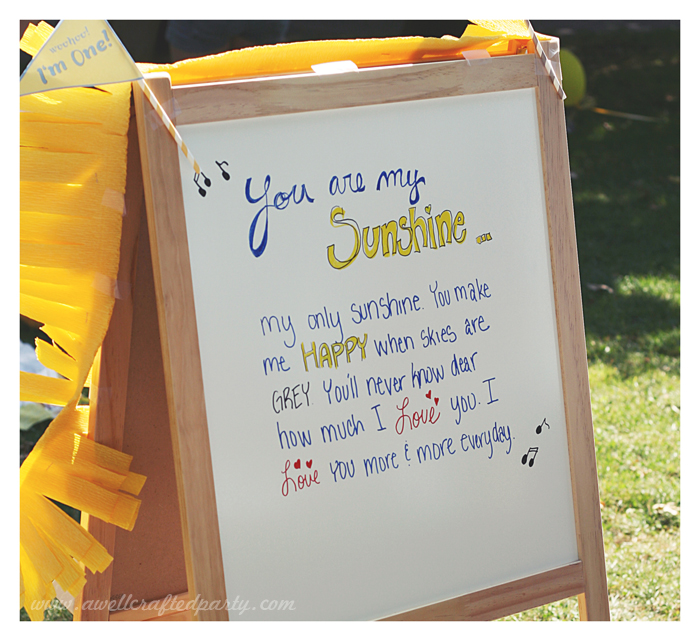 woohoo!
I'm One!
You are my
Sunshine...
my only sunshine. You make
me HAPPY when skies are
GREY. You'll never know dear
how much I Love you. I
Love You more & more everyday.
www.awellcraftedparty.com